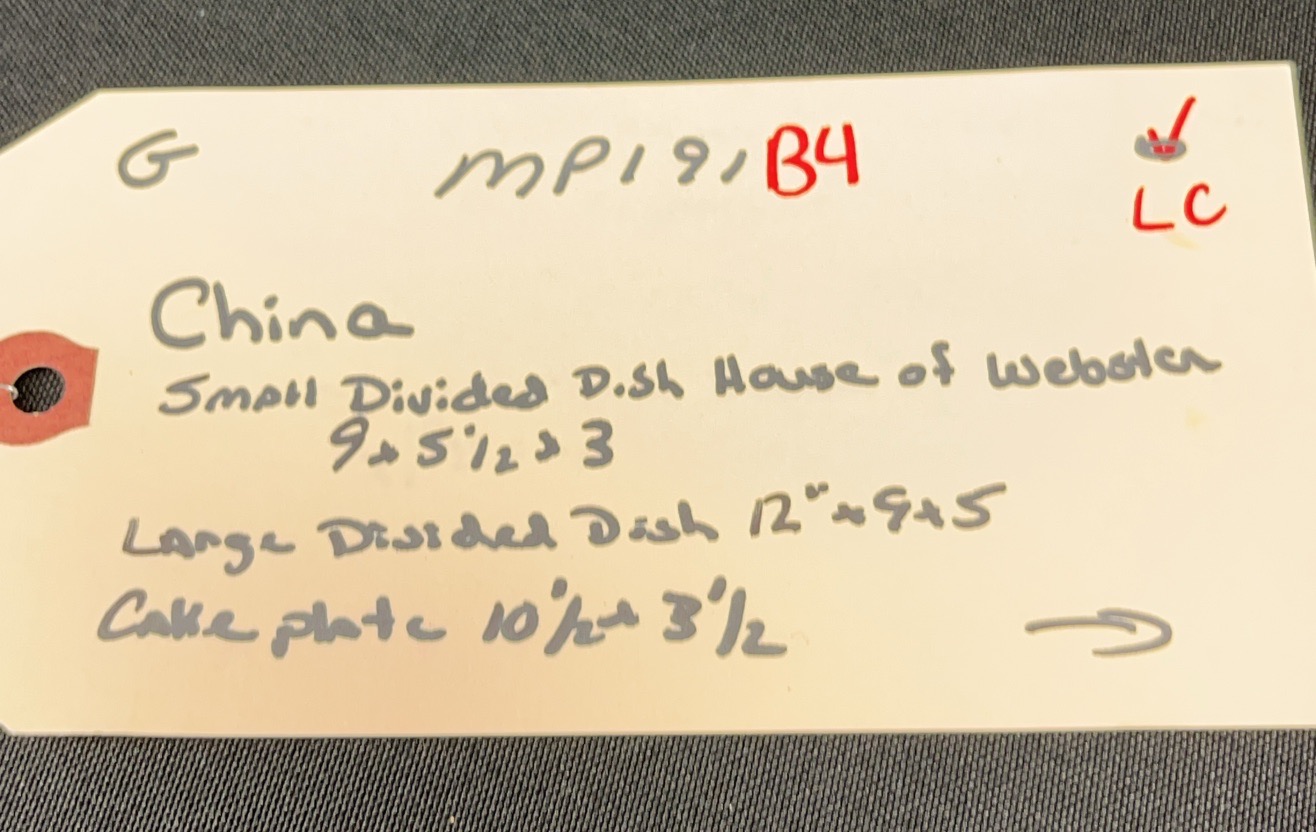 G MP191 B4 ✓
LC
China
Small Divided Dish House of Webster
9 x 5 1/2 x 3
Large Divided Dish 12" x 9 x 5
Cake plate 10 1/2 x 3 1/2 →